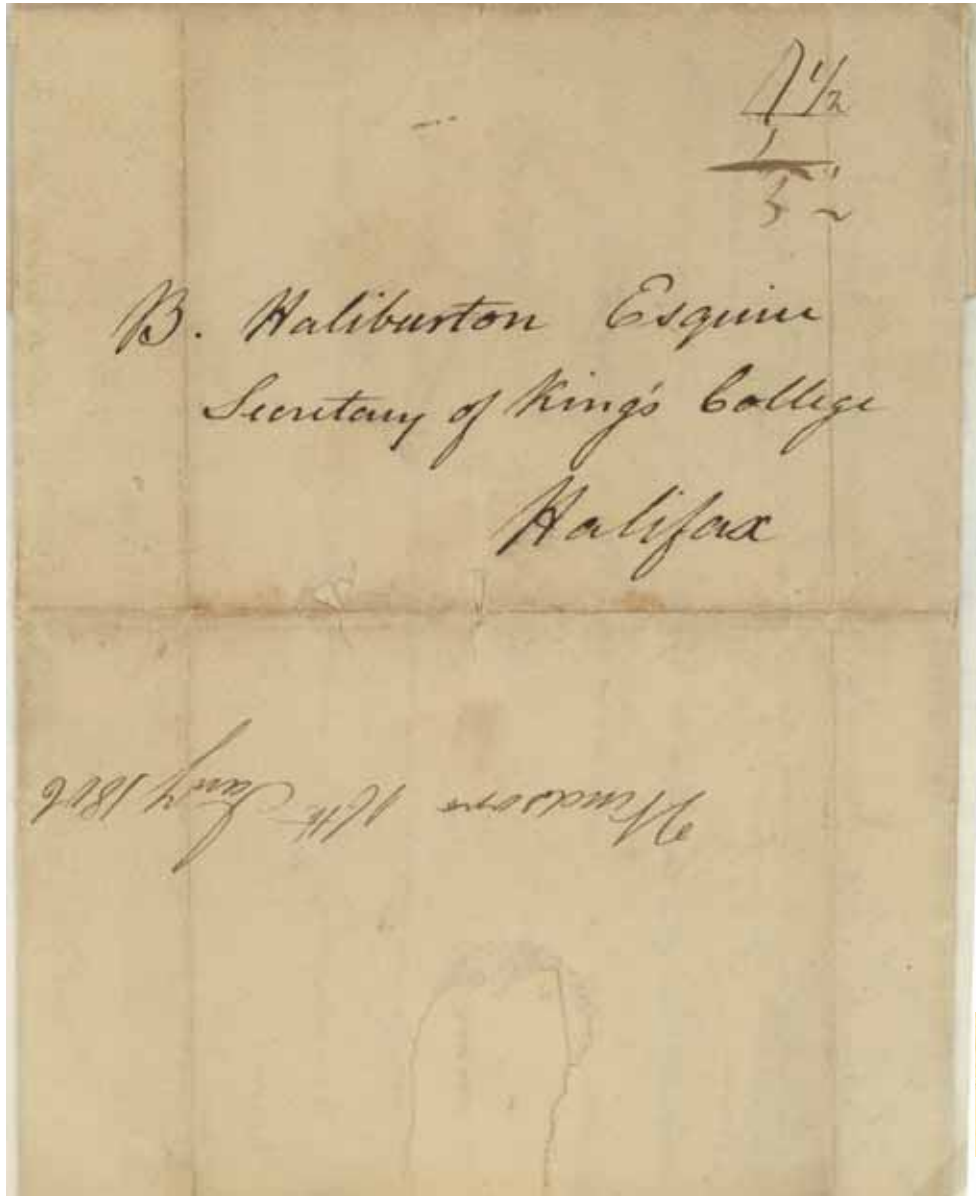 B. Haliburton Esquire
Secretary of King's College
Halifax
Windsor 16th Jany 1806